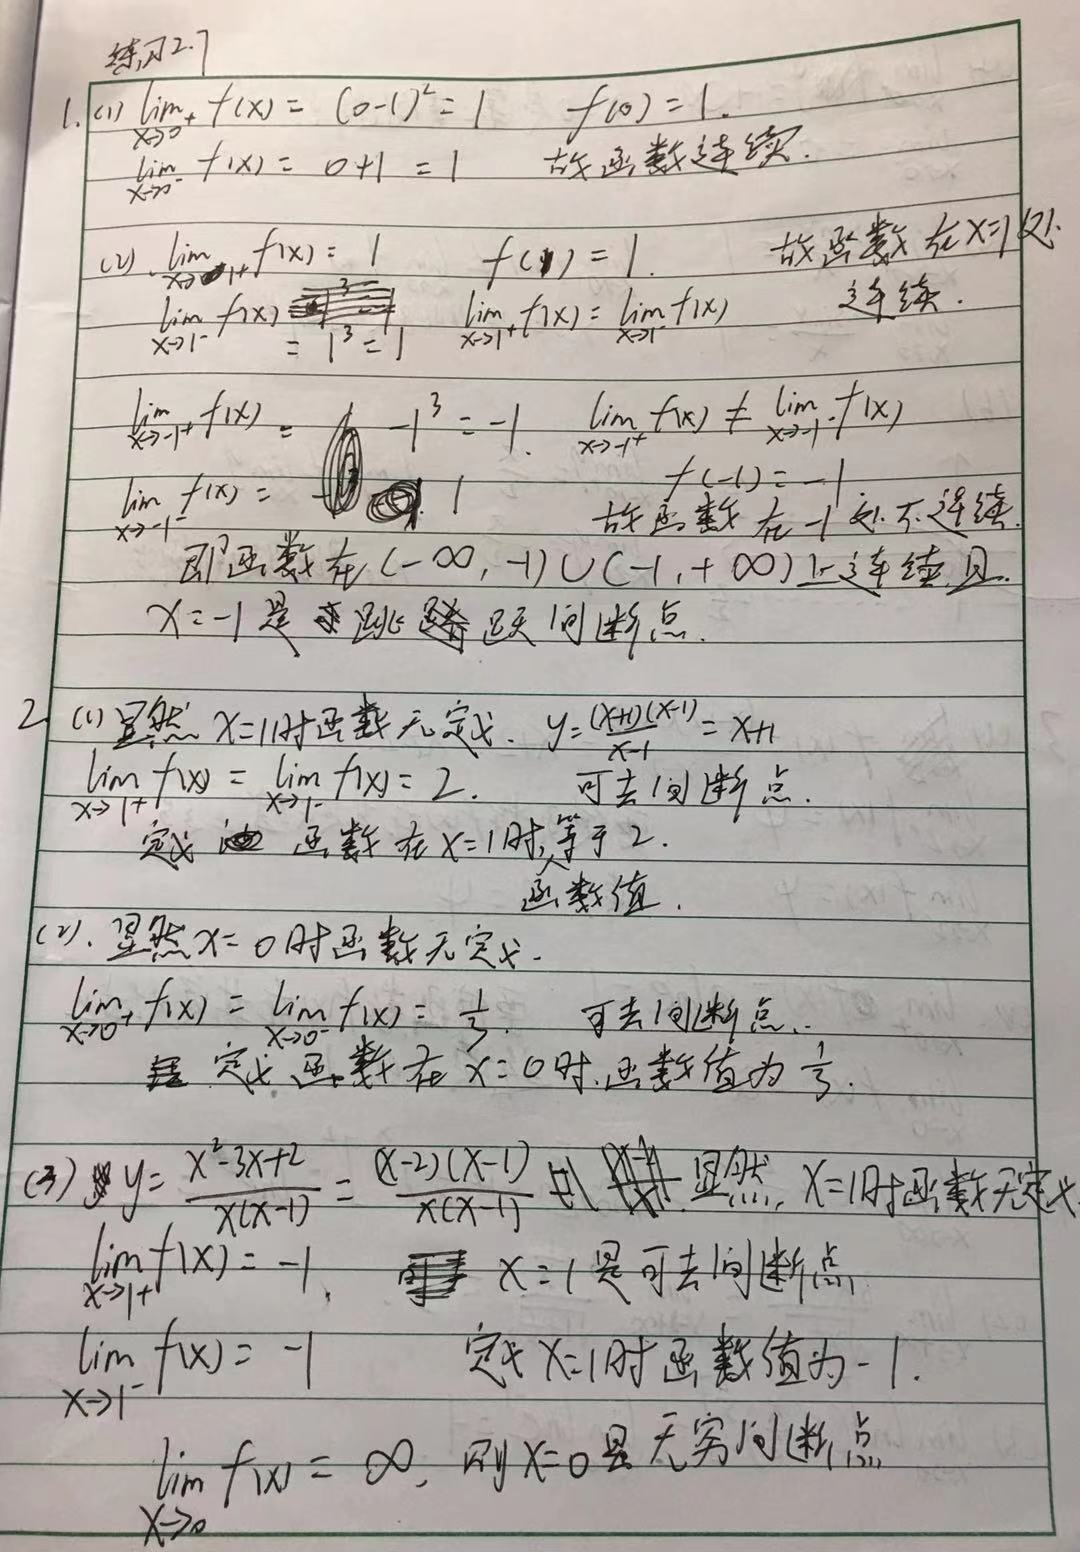 练习2.7
1.(1) lim x→0+ f(x) = (0-1)² = 1 f(0) = 1.
lim x→0- f(x) = 0+1 = 1 故函数连续.
(2) lim x→1+ f(x) = 1 f(1) = 1. 故函数在x=1处
连续.
lim x→1- f(x) = 1³ = 1 lim x→1+ f(x) = lim x→1- f(x)
lim x→-1+ f(x) = -1³ = -1. lim x→-1+ f(x) ≠ lim x→-1- f(x)
lim x→-1- f(x) = 1 f(-1) = -1
故函数在-1处不连续.
即函数在(-∞,-1)∪(-1,+∞)上连续且.
x=-1是跳跃间断点.
2.(1)显然x=1时函数无定义. y=(x+1)(x-1)/x-1 = x+1
lim x→1+ f(x) = lim x→1- f(x) = 2. 可去间断点.
定义函数在x=1时函数值等于2.
(2).显然x=0时函数无定义.
lim x→0+ f(x) = lim x→0- f(x) = 1/3. 可去间断点.
定义函数在x=0时.函数值为1/3.
(3) y= x²-3x+2/x(x-1) = (x-2)(x-1)/x(x-1) 显然,x=1时函数无定义.
lim x→1+ f(x) = -1, x=1是可去间断点
lim x→1- f(x) = -1 定义x=1时函数值为-1.
lim x→0 f(x) = ∞, 则x=0是无穷间断点